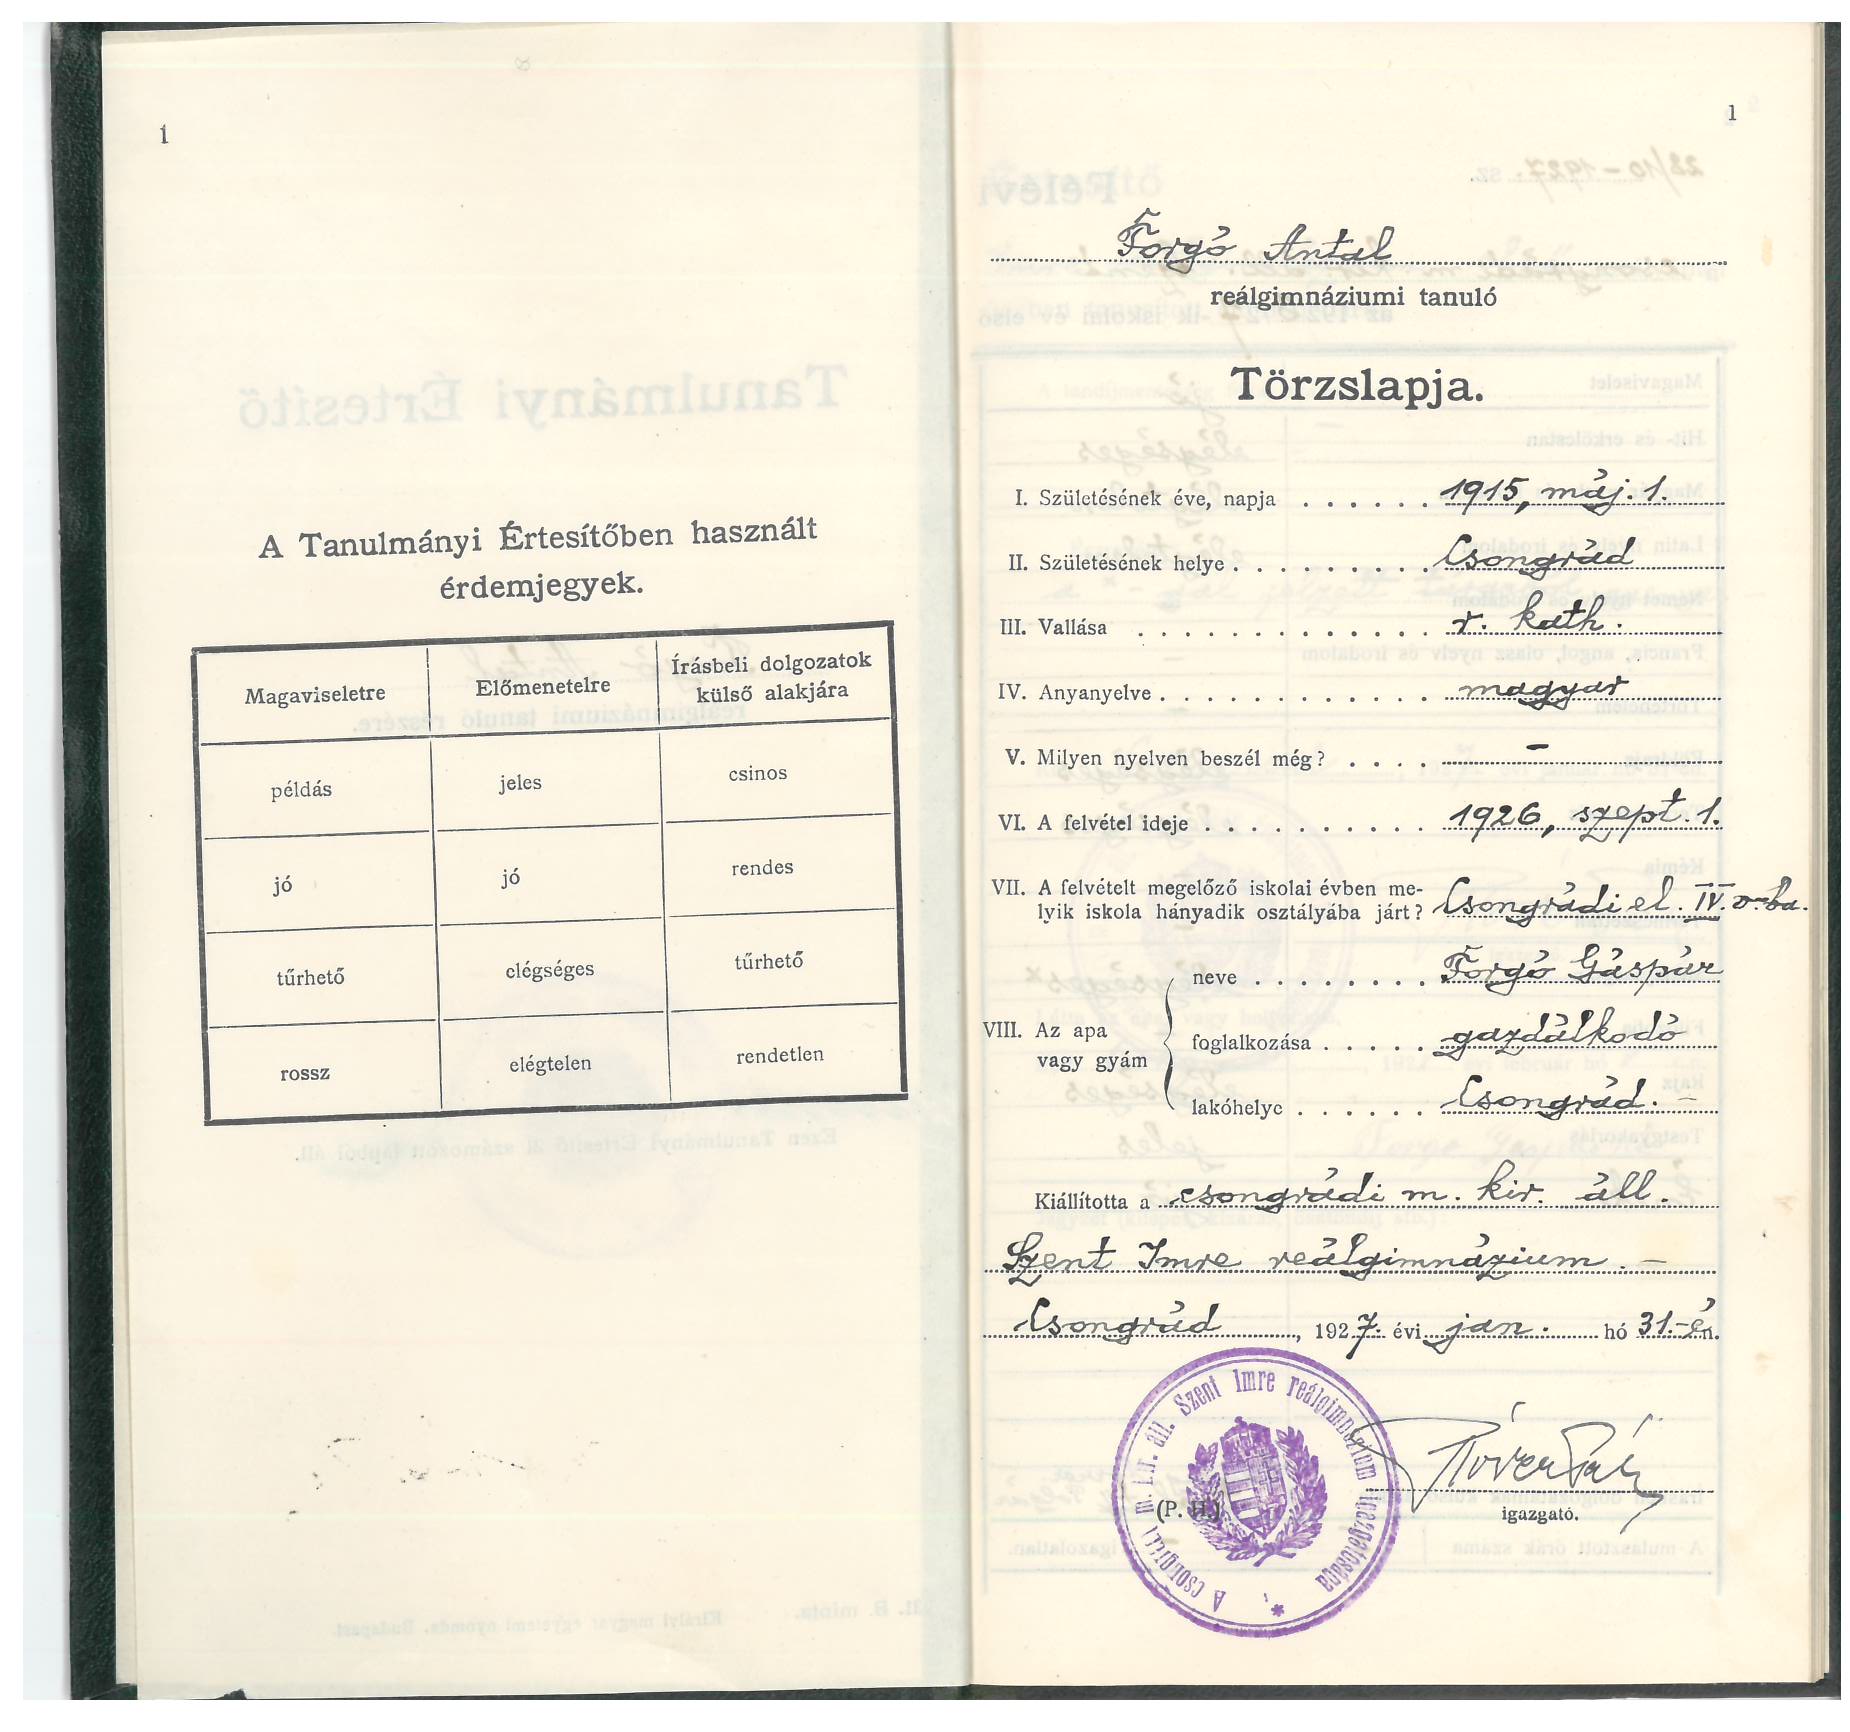 1
A Tanulmányi Értesítőben használt
érdemjegyek.
Magaviseletre Előmenetelre Írásbeli dolgozatok
külső alakjára
példás jeles csinos
jó jó rendes
tűrhető elégséges tűrhető
rossz elégtelen rendetlen
1
Forgó Antal
reálgimnáziumi tanuló
Törzslapja.
I. Születésének éve, napja . . . . . . 1915, máj. 1.
II. Születésének helye . . . . . . . . . Csongrád
III. Vallása . . . . . . . . . . . . . r. kath.
IV. Anyanyelve . . . . . . . . . . . . magyar
V. Milyen nyelven beszél még? . . . . –
VI. A felvétel ideje . . . . . . . . . . 1926, szept. 1.
VII. A felvételt megelőző iskolai évben me-
lyik iskola hányadik osztályába járt? Csongrádi el. IV. o-ba.
neve . . . . . . . . . Forgó Gáspár
VIII. Az apa
vagy gyám
foglalkozása . . . . . gazdálkodó
lakóhelye . . . . . . Csongrád. –
Kiállította a csongrádi m. kir. áll.
Szent Imre reálgimnázium. –
Csongrád, 1927. évi jan. hó 31.-én.
A csongrádi m. kir. áll. Szent Imre reálgimnázium igazgatósága *
(P. H.)
igazgató.